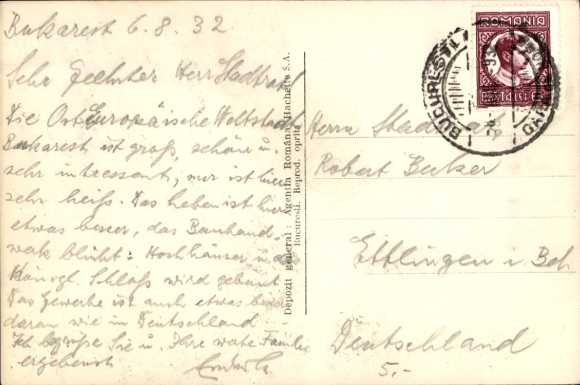 Bukarest 6.8.32
Sehr geehrter Herr Stadtrat
Die Osteuropäische Weltstadt
Bukarest ist groß, schön u.
sehr interessant, nur ist hier
sehr heiß. Das Leben ist hier
etwas besser, das Bauhand-
werk blüht: Hochhäuser u. das
Königl. Schloß wird gebaut
Das Gewerbe ist auch etwas besser
daran wie in Deutschland
Ich begrüße Sie u. Ihre werte Familie
ergebenst
Depozit general: Agentia Română Hachette S.A.
Bucuresti. Reprod. oprita
ROMANIA
BUCUREȘTI
GARA
Herrn Stadtrat
Robert Becker
Ettlingen i. Bd.
Deutschland
5.-